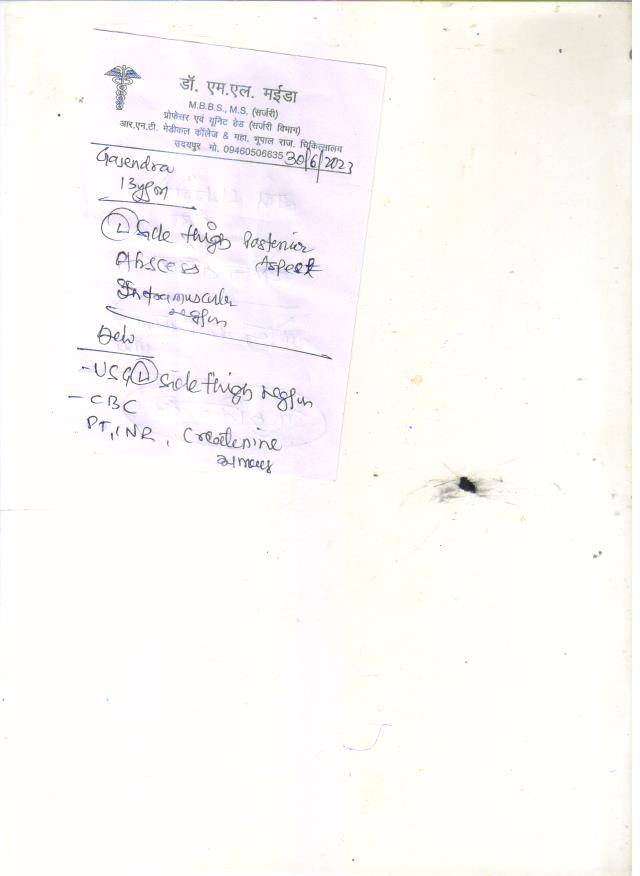 डॉ. एम.एल. मईडा
M.B.B.S., M.S. (सर्जरी)
प्रोफेसर एवं यूनिट हेड (सर्जरी विभाग)
आर.एन.टी. मेडीकल कॉलेज & महा. भूपाल राज. चिकित्सालय
उदयपुर मो. 09460506635 30/6/2023
Gajendra
13y/m
(L) Side thigh Posterior
Abscess Aspect
Intramuscular
region
Adv
- USG (L) side thigh region
- CBC
PT, INR, Creatinine